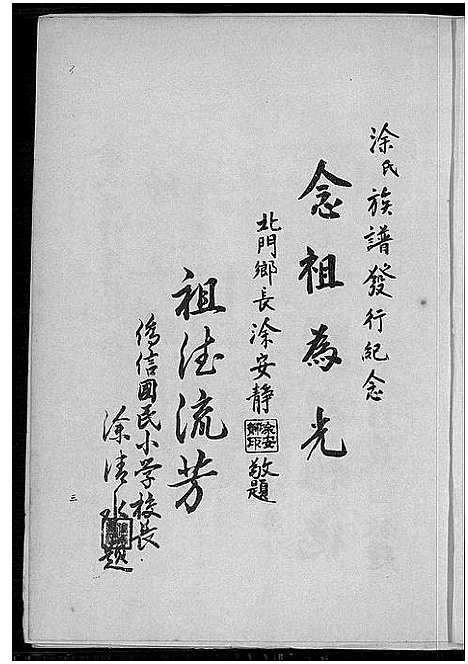 涂氏族譜發行紀念
念祖為光
北門鄉長涂安靜敬題
祖德流芳
僑信國民小学校長
涂清水題
三